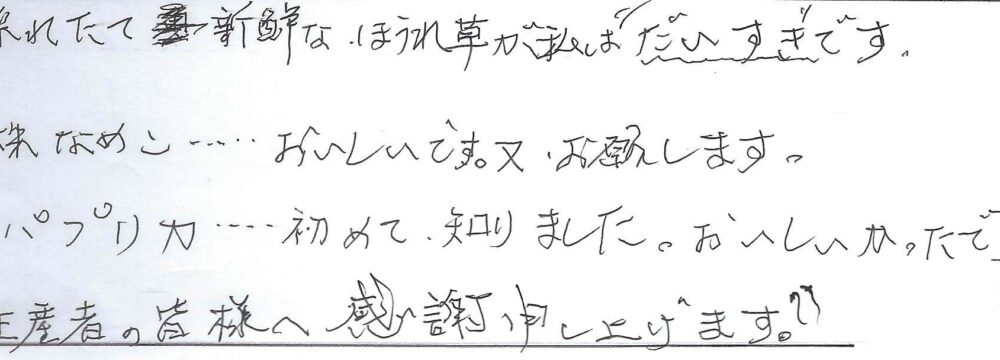 採れたて 新鮮な、ほうれ草が私は〝だいすき〟です。
株なめこ‥‥‥おいしいです。又、お願します。
パプリカ‥‥初めて、知りました。おいしいかったで
生産者の皆様へ 感謝申し上げます。〃